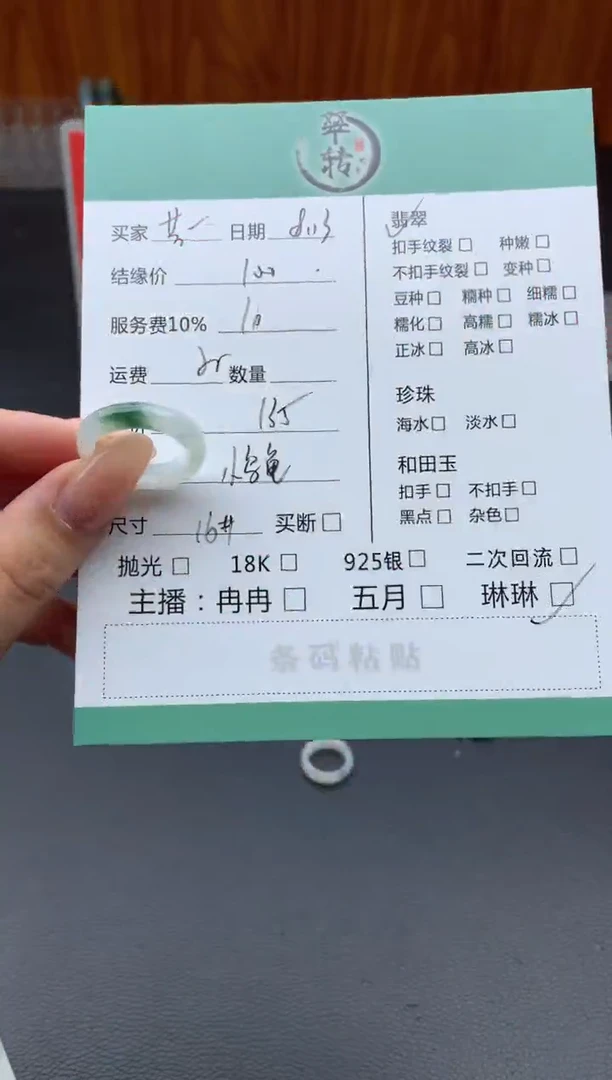 翠
转
买家 日期
结缘价 100
服务费10% 10
运费 数量
135
小乌龟
尺寸 16# 买断□
翡翠
扣手纹裂□ 种嫩□
不扣手纹裂□ 变种□
豆种□ 糯种□ 细糯□
糯化□ 高糯□ 糯冰□
正冰□ 高冰□
珍珠
海水□ 淡水□
和田玉
扣手□ 不扣手□
黑点□ 杂色□
抛光□ 18K□ 925银□ 二次回流□
主播：冉冉□ 五月□ 琳琳□
条码粘贴